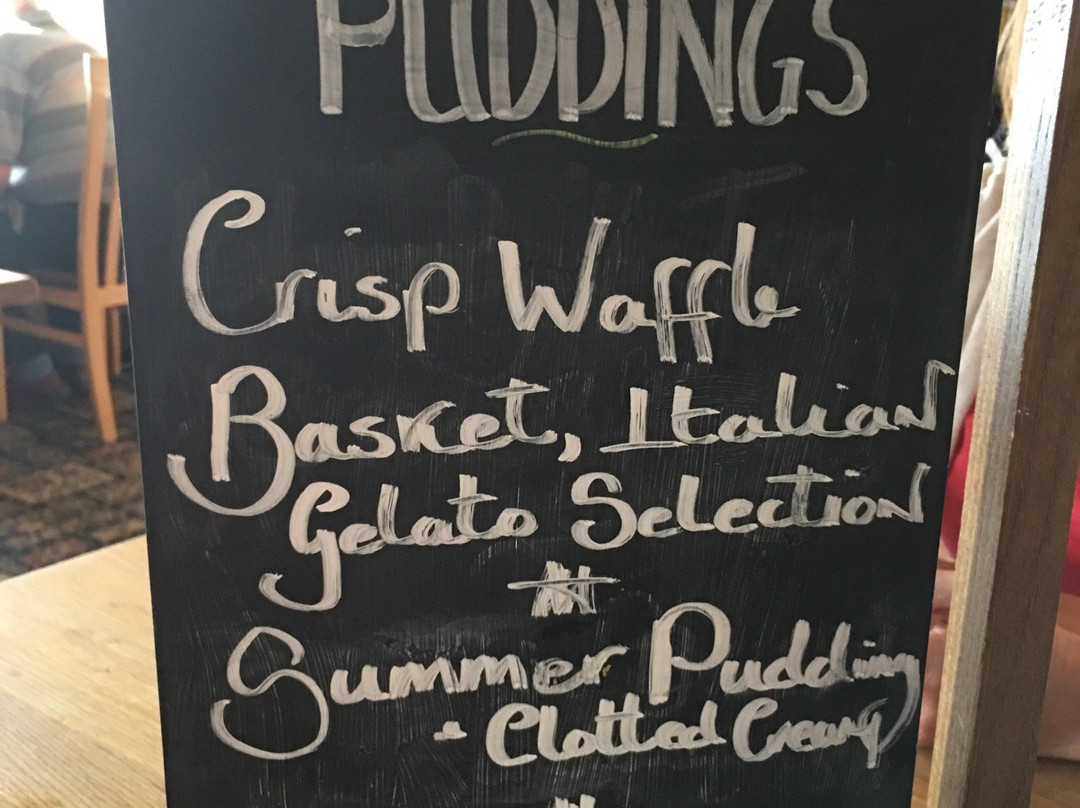 PUDDINGS
Crisp Waffle
Basket, Italian
Gelato Selection
Summer Pudding
+ Clotted Cream